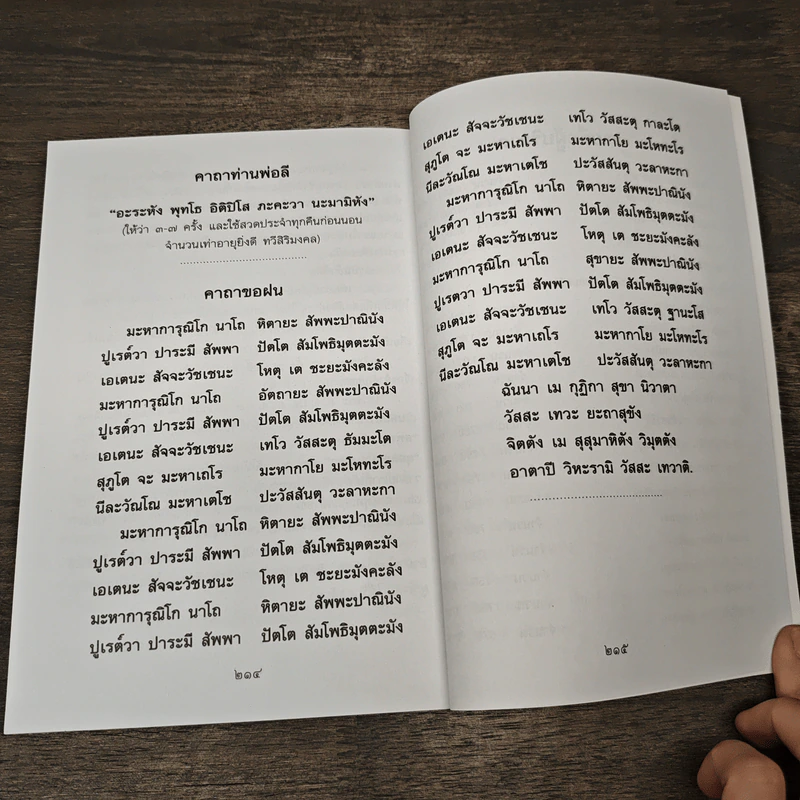 คาถาท่านพ่อลี
“อะระหัง พุทโธ อิติปิโส ภะคะวา นะมามิหัง”
(ให้ว่า ๓-๗ ครั้ง และใช้สวดประจำทุกคืนก่อนนอน
จำนวนเท่าอายุยิ่งดี ทวีสิริมงคล)
คาถาขอฝน
มะหาการุณิโก นาโถ หิตายะ สัพพะปาณินัง
ปูเรต์วา ปาระมี สัพพา ปัตโต สัมโพธิมุตตะมัง
เอเตนะ สัจจะวัชเชนะ โหตุ เต ชะยะมังคะลัง
มะหาการุณิโก นาโถ อัตถายะ สัพพะปาณินัง
ปูเรต์วา ปาระมี สัพพา ปัตโต สัมโพธิมุตตะมัง
เอเตนะ สัจจะวัชเชนะ เทโว วัสสะตุ ธัมมะโต
สุภูโต จะ มะหาเถโร มะหากาโย มะโหทะโร
นีละวัณโณ มะหาเตโช ปะวัสสันตุ วะลาหะกา
มะหาการุณิโก นาโถ หิตายะ สัพพะปาณินัง
ปูเรต์วา ปาระมี สัพพา ปัตโต สัมโพธิมุตตะมัง
เอเตนะ สัจจะวัชเชนะ โหตุ เต ชะยะมังคะลัง
มะหาการุณิโก นาโถ หิตายะ สัพพะปาณินัง
ปูเรต์วา ปาระมี สัพพา ปัตโต สัมโพธิมุตตะมัง
๒๑๔
เอเตนะ สัจจะวัชเชนะ เทโว วัสสะตุ กาละโต
สุภูโต จะ มะหาเถโร มะหากาโย มะโหทะโร
นีละวัณโณ มะหาเตโช ปะวัสสันตุ วะลาหะกา
มะหาการุณิโก นาโถ หิตายะ สัพพะปาณินัง
ปูเรต์วา ปาระมี สัพพา ปัตโต สัมโพธิมุตตะมัง
เอเตนะ สัจจะวัชเชนะ โหตุ เต ชะยะมังคะลัง
มะหาการุณิโก นาโถ สุขายะ สัพพะปาณินัง
ปูเรตวา ปาระมี สัพพา ปัตโต สัมโพธิมุตตะมัง
เอเตนะ สัจจะวัชเชนะ เทโว วัสสะตุ ฐานะโส
สุภูโต จะ มะหาเถโร มะหากาโย มะโหทะโร
นีละวัณโณ มะหาเตโช ปะวัสสันตุ วะลาหะกา
ฉันนา เม กุฏิกา สุขา นิวาตา
วัสสะ เทวะ ยะถาสุขัง
จิตตัง เม สุสุมาหิตัง วิมุตตัง
อาตาปี วิหะรามิ วัสสะ เทวาติ.
๒๑๕